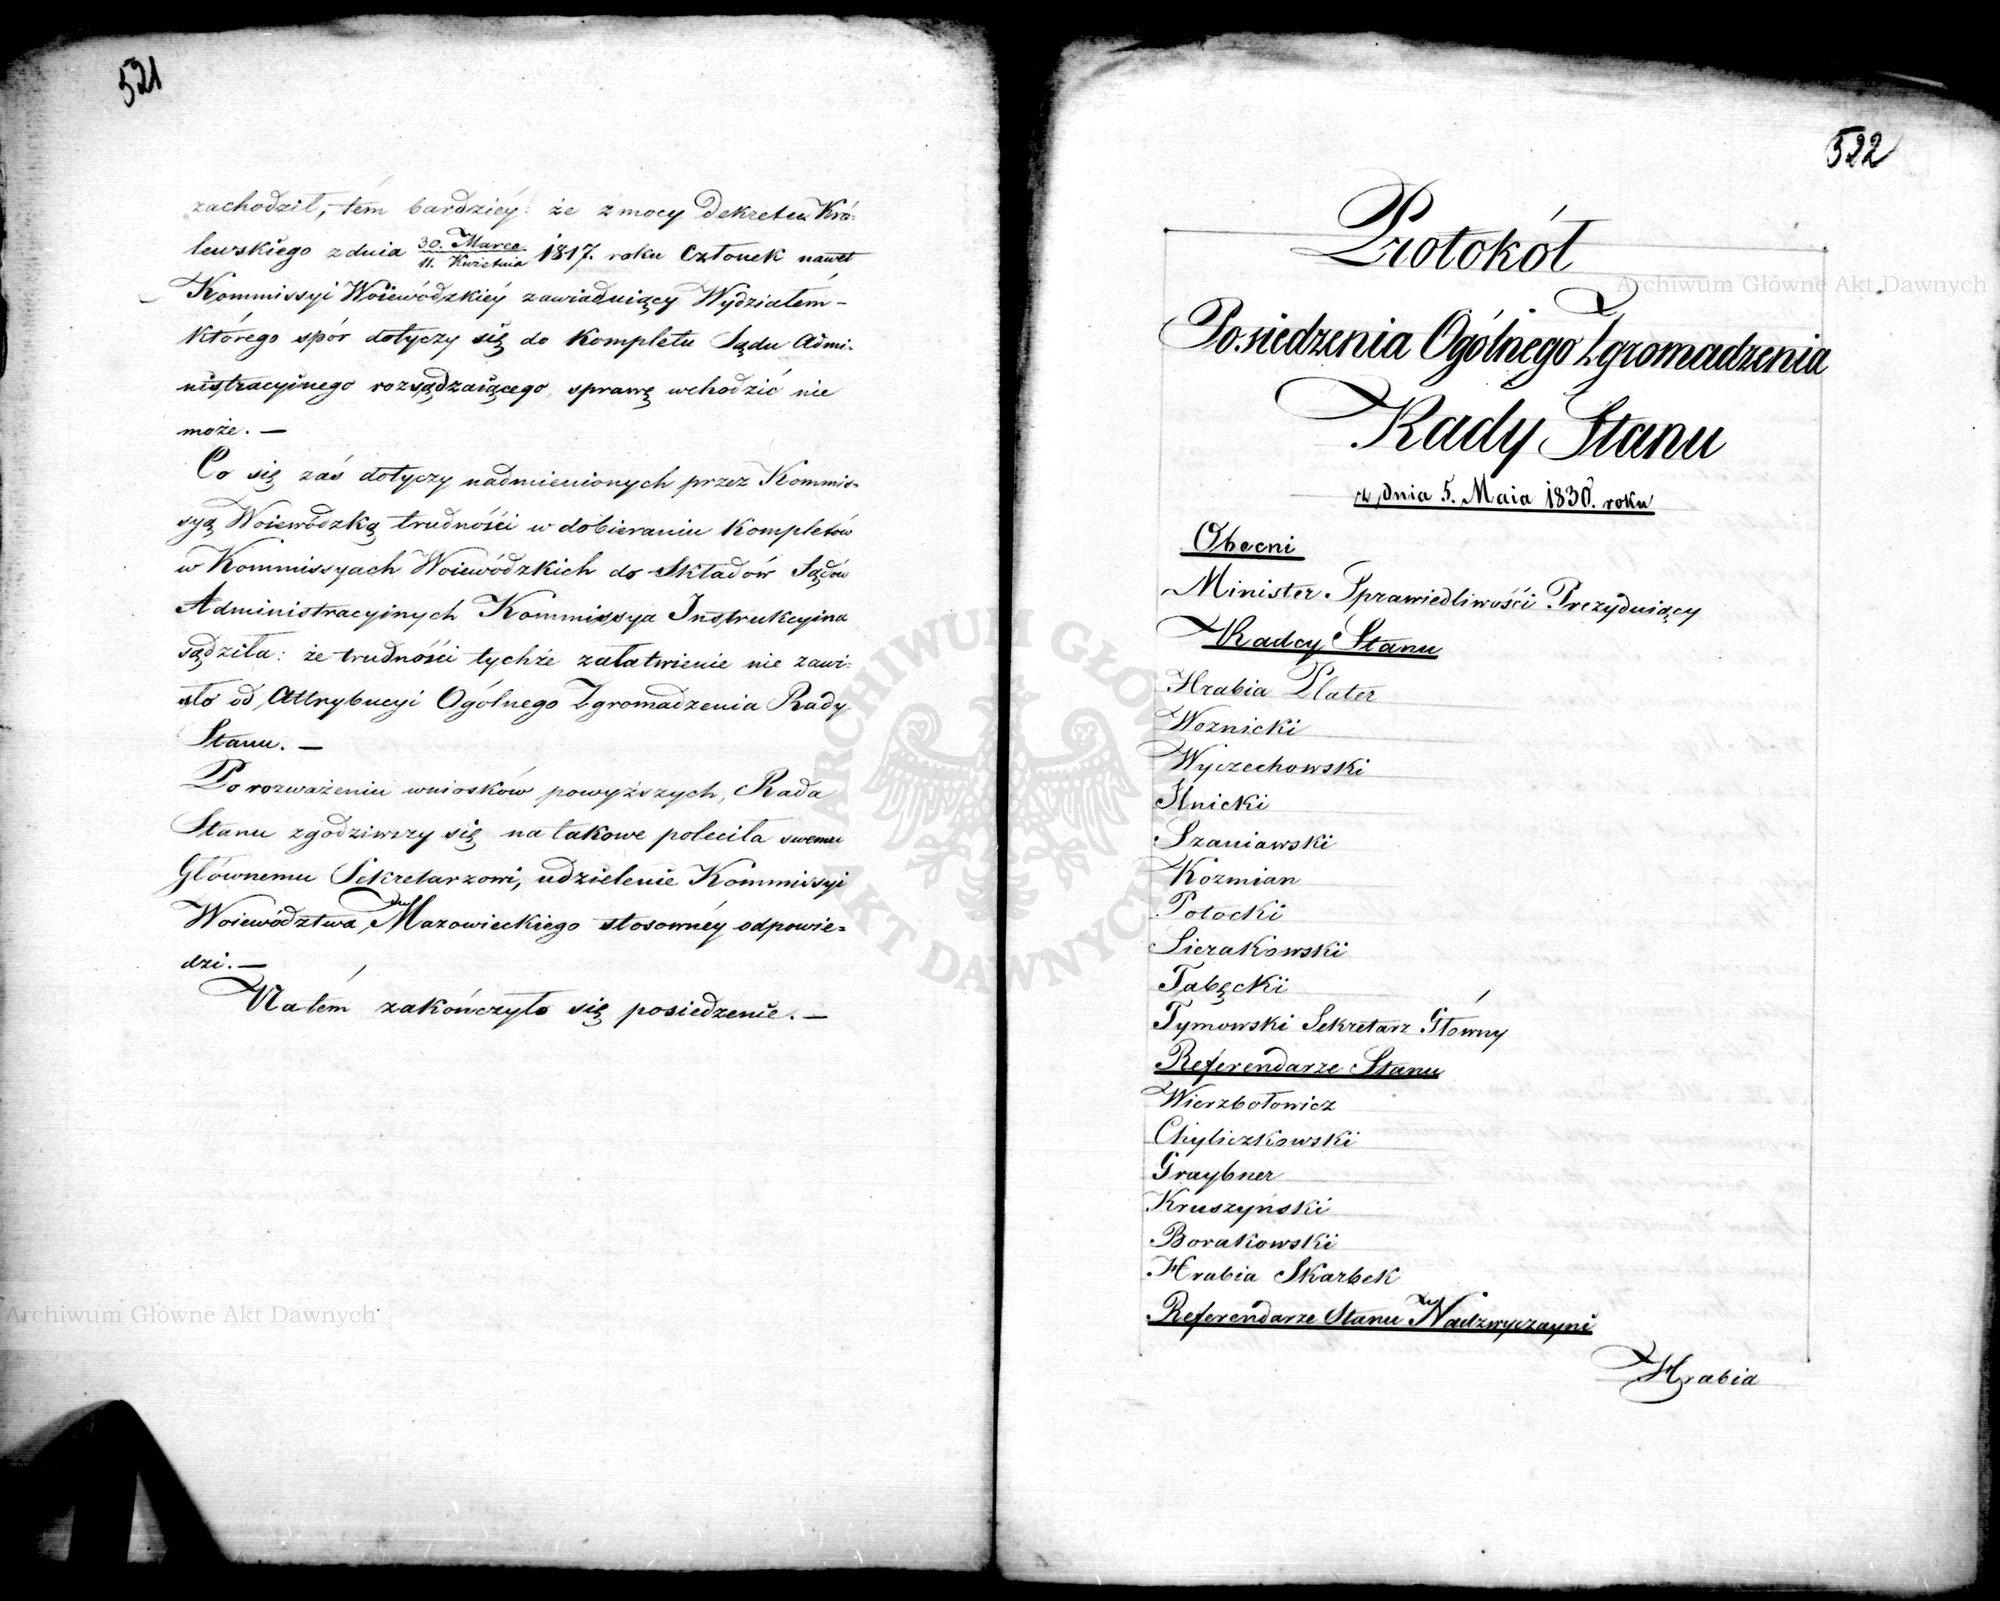 521
zachodził, tém bardziéy: że z mocy Dekretu Kró-
lewskiego z dnia 30. Marca / 11. Kwietnia 1817. roku Członek nawet
Kommissyi Woiewódzkiéy zawiaduiący Wydziałem –
którego spór dotyczy się do kompletu Sądu Admi-
nistracyinego rozsądzaiącego, sprawę wchodzić nie
może. —
Co się zaś dotyczy nadmienionych przez Kommis-
syą Woiewódzką trudności w dobieraniu kompletów
w Kommissyach Woiewódzkich do składów Sądów
Administracyinych Kommissya Instrukcyina
sądziła: że trudności tychże załatwienie nie zawi-
sło od Attrybucyi Ogólnego Zgromadzenia Rady
Stanu. —
Po rozważeniu wniosków powyższych, Rada
Stanu zgodziwszy się na takowe poleciła swemu
Głównemu Sekretarzowi, udzielenie Kommissyi
Woiewództwa Mazowieckiego stosownéy odpowie=
dzi. —
Na tém zakończyło się posiedzenie. —
522
Protokół
Posiedzenia Ogólnego Zgromadzenia
Rady Stanu
z dnia 5. Maia 1830. roku
Obecni
Minister Sprawiedliwości Prezyduiący
Radcy Stanu
Hrabia Plater
Woznicki
Wyczechowski
Ilnicki
Szaniawski
Kozmian
Potocki
Sierakowski
Tabęcki
Tymowski Sekretarz Główny
Referendarze Stanu
Wierzbołowicz
Chyliczkowski
Graybner
Kruszyński
Borakowski
Hrabia Skarbek
Referendarze Stanu Nadzwyczayni
Hrabia
Archiwum Główne Akt Dawnych
Archiwum Główne Akt Dawnych
ARCHIWUM GŁÓWNE AKT DAWNYCH